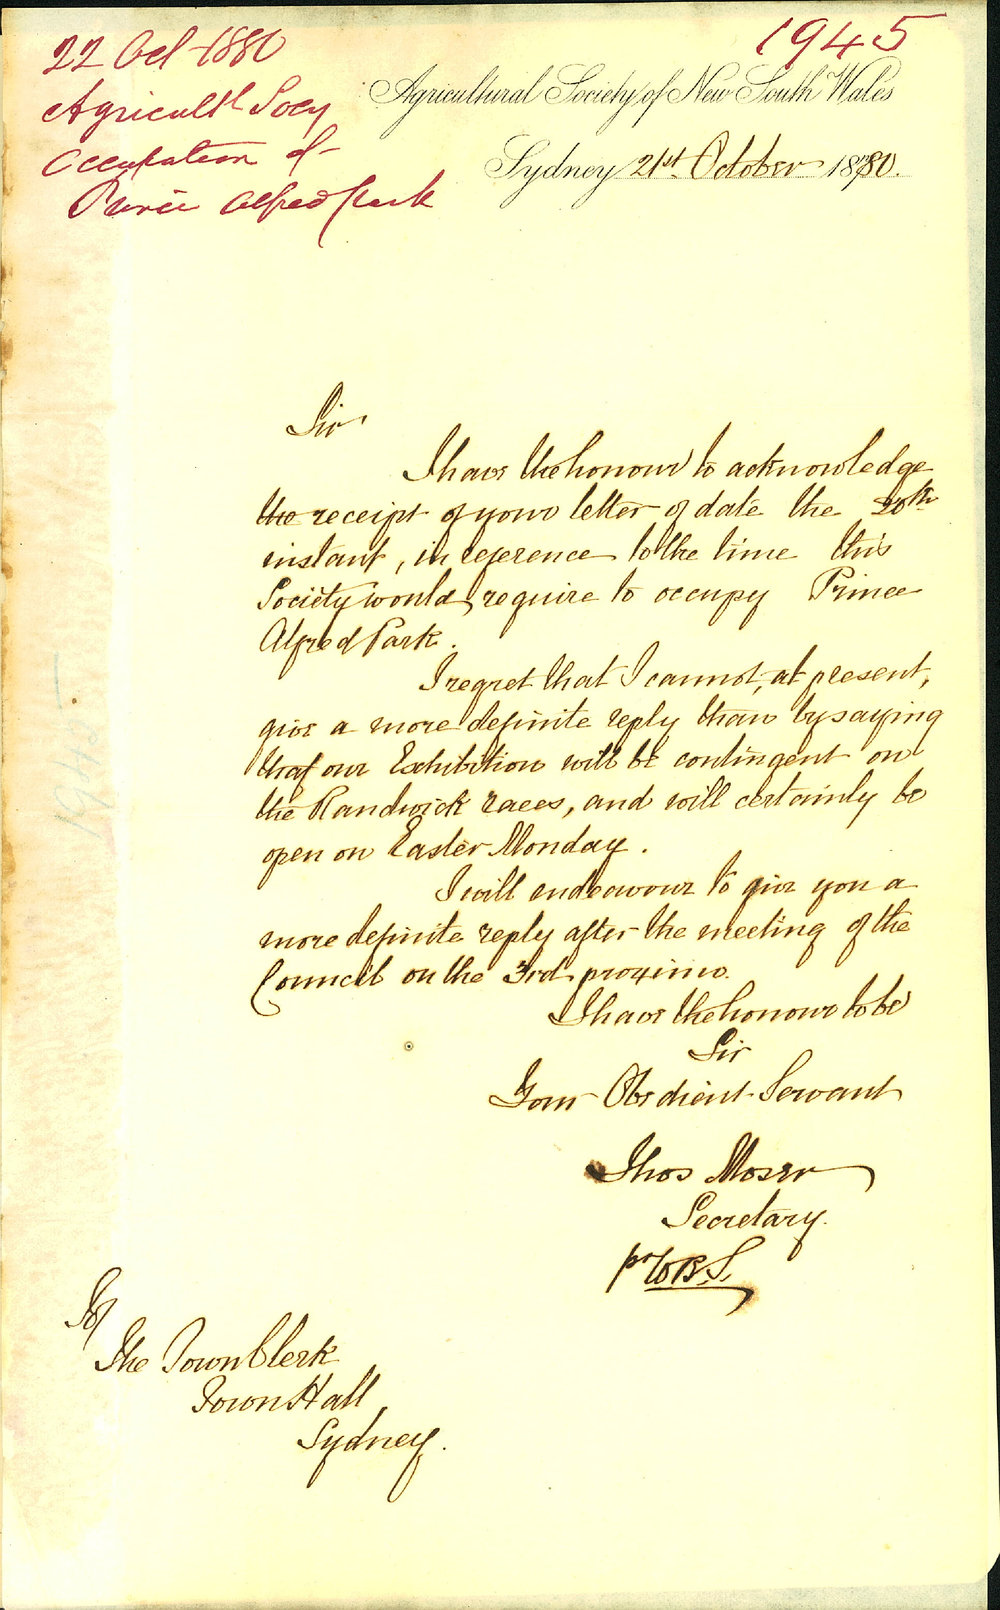 22 Oct 1880
1945
Agricult'l Socy
Occupation of
Prince Alfred Park
Agricultural Society of New South Wales
Sydney 21st October 1880.
Sir
I have the honour to acknowledge
the receipt of your letter of date the 20th
instant, in reference to the time this
Society would require to occupy Prince
Alfred Park.
I regret that I cannot, at present,
give a more definite reply than by saying
that our Exhibition will be contingent on
the Randwick races, and will certainly be
open on Easter Monday.
I will endeavour to give you a
more definite reply after the meeting of the
Council on the 3rd proximo.
I have the honour to be
Sir
Your Obedient Servant
Thos Moser
Secretary.
pr W.B.S.
To
The Town Clerk
Town Hall
Sydney.
1945